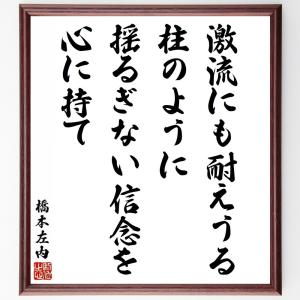 激流にも耐えうる
柱のように
揺るぎない信念を
心に持て
橋本左内